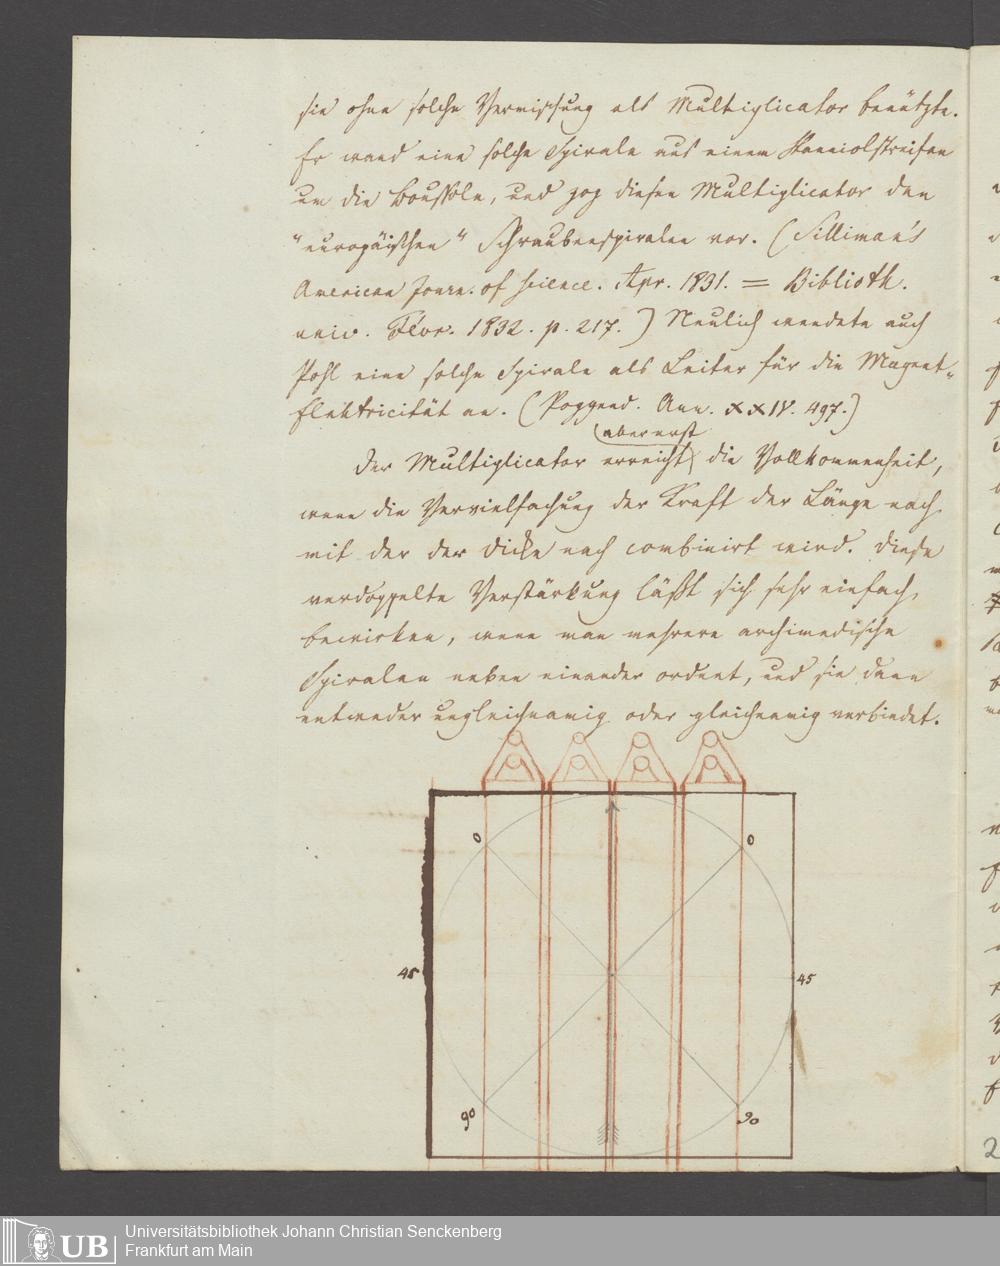 sie ohne solche Vermischung als Multiplicator benützte.
Er wand eine solche Spirale aus einem Stanniolstreifen
um die Boussole, und zog diesen Multiplicator den
"europäischen" Schraubenspiralen vor. (Silliman's
American Journ. of science. Apr. 1831. = Biblioth.
univ. Fevr. 1832. p. 217.) Neulich wendete auch
Pohl eine solche Spirale als Leiter für die Magnet-
Elektricität an. (Poggend. Ann. XXIV. 497.)
aber erst
Der Multiplicator erreicht die Vollkommenheit,
wenn die Vervielfachung der Kraft der Länge nach
mit der der Dicke nach combinirt wird. Diese
verdoppelte Verstärkung läßt sich sehr einfach
bewirken, wenn man mehrere archimedische
Spiralen neben einander ordnet, und sie dann
entweder ungleichnamig oder gleichnamig verbindet.
0 0
45 45
90 90
2
Universitätsbibliothek Johann Christian Senckenberg
Frankfurt am Main
UB